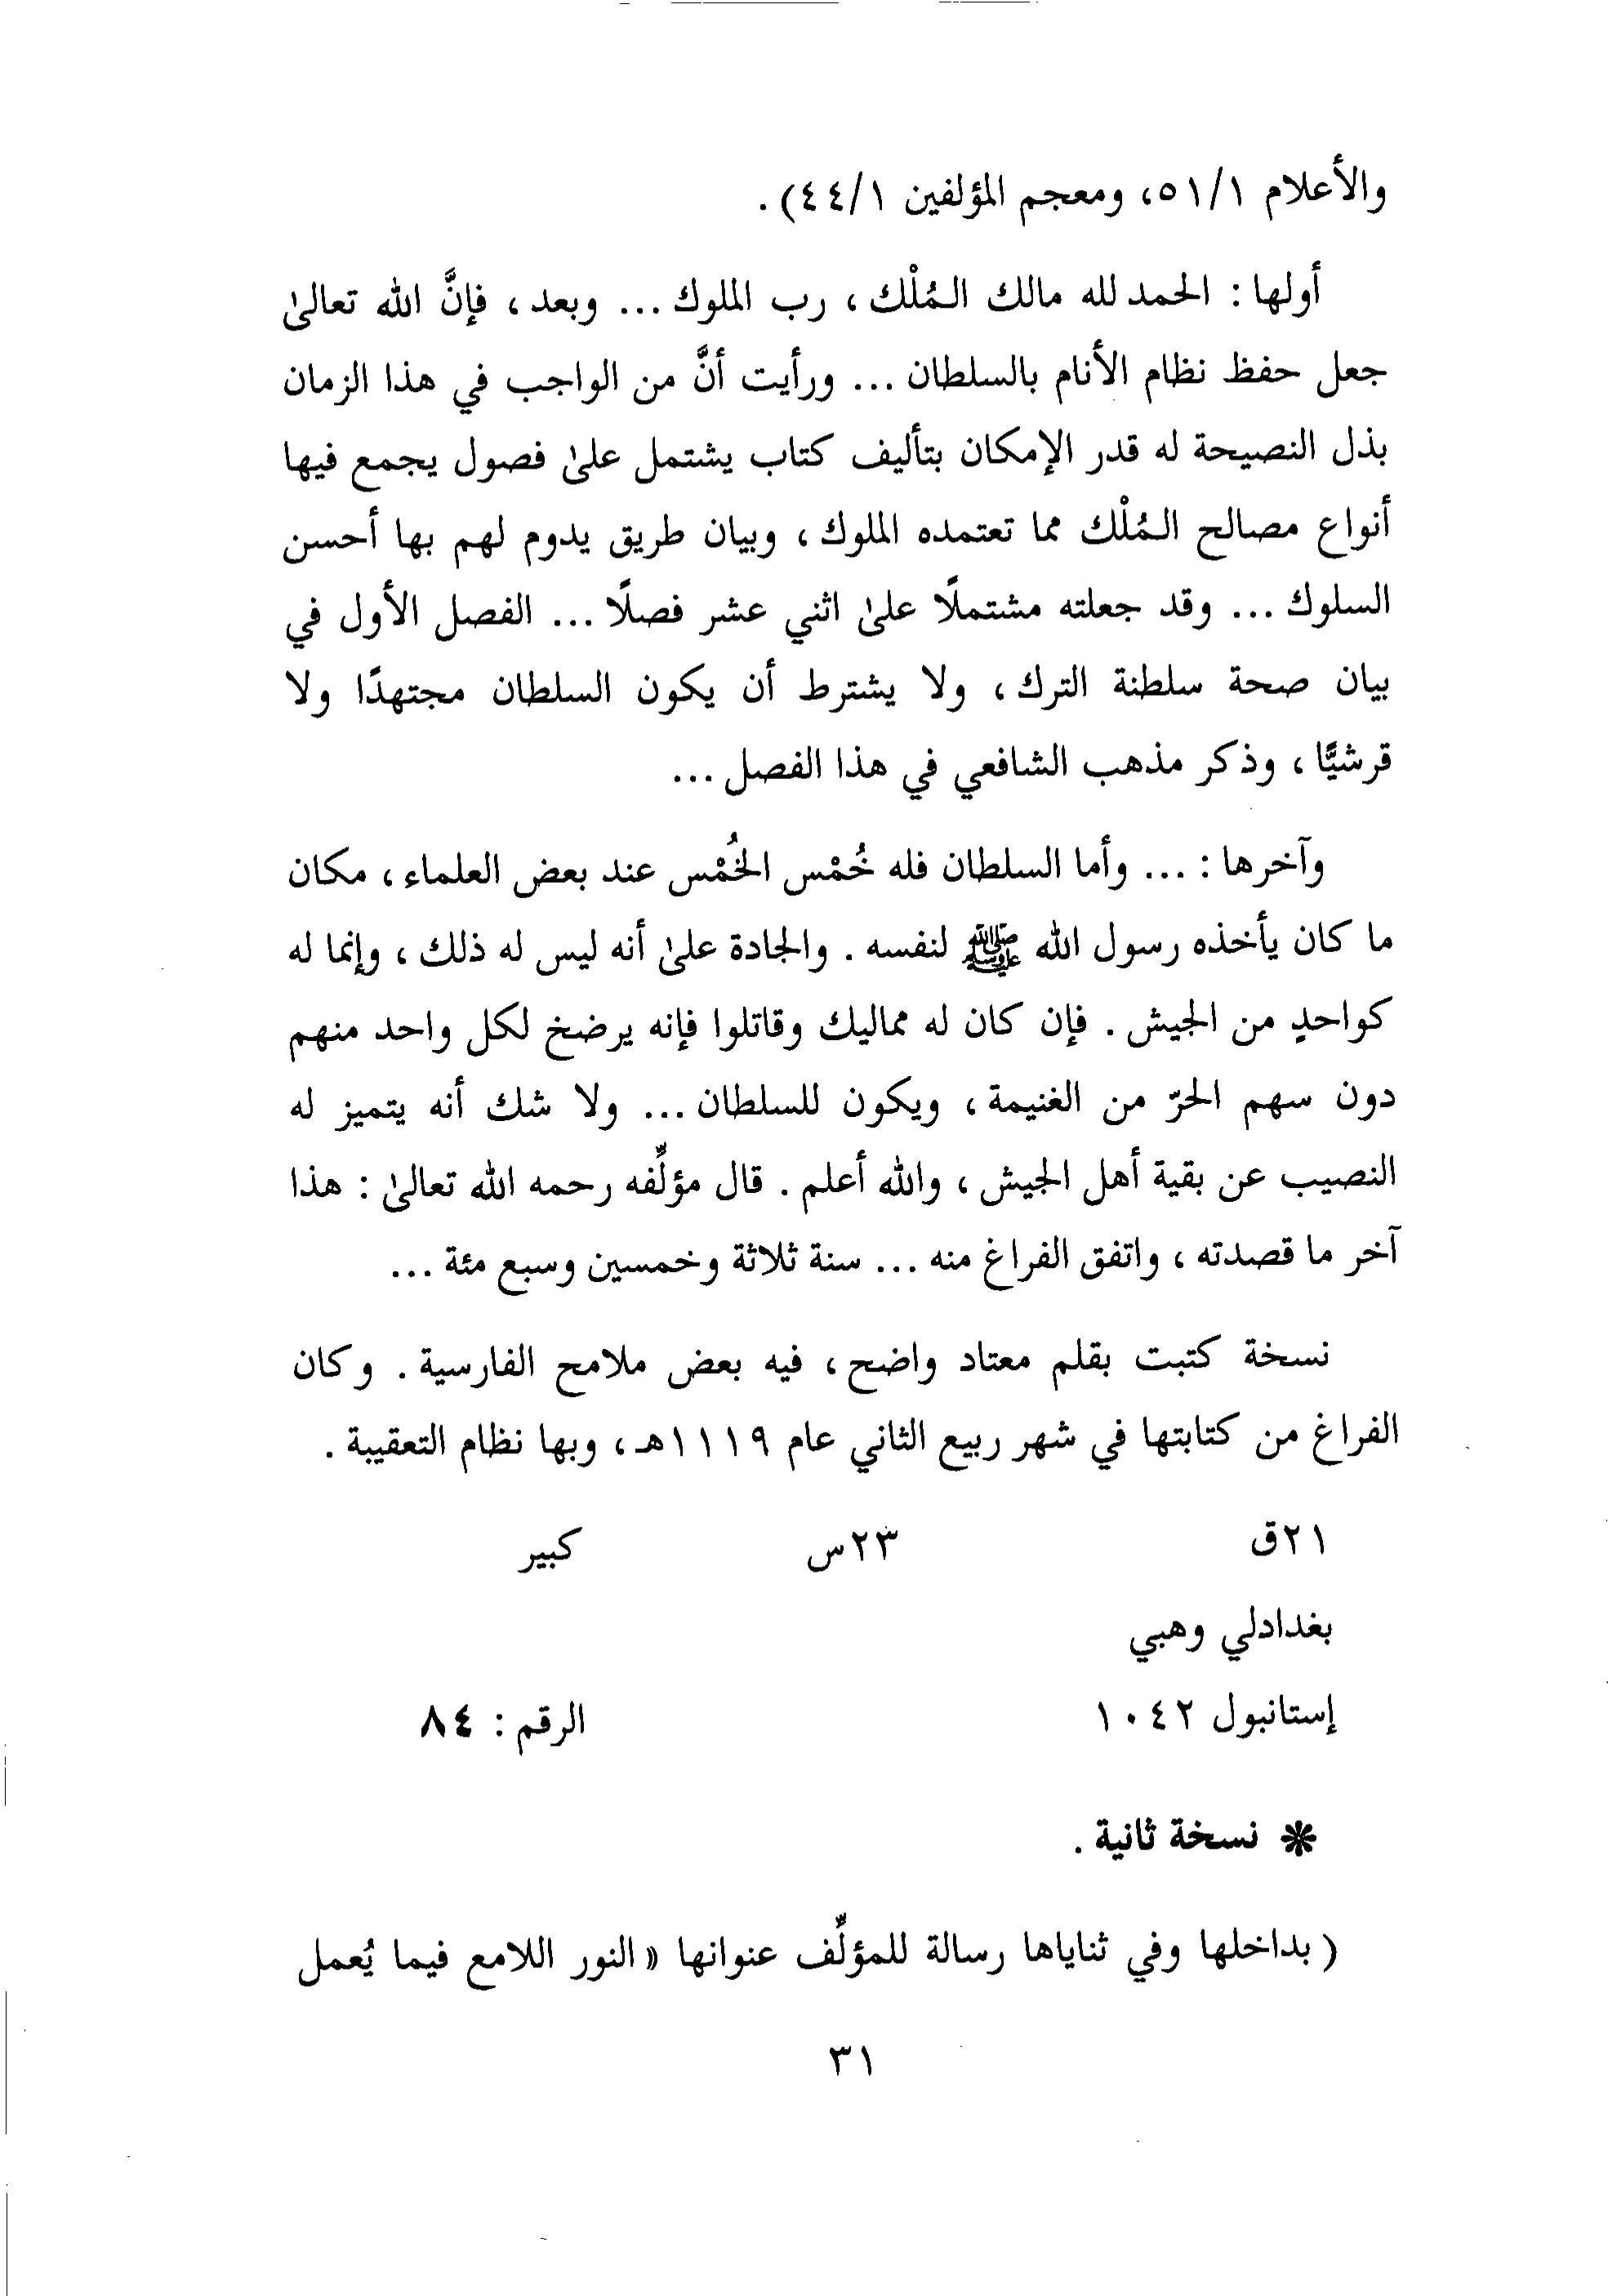 والأعلام ٥١/١، ومعجم المؤلفين ٤٤/١).
أولها : الحمد لله مالك الـمُلْك ، رب الملوك ... وبعد ، فإنَّ الله تعالىٰ
جعل حفظ نظام الأنام بالسلطان ... ورأيت أنَّ من الواجب في هذا الزمان
بذل النصيحة له قدر الإمكان بتأليف كتاب يشتمل علىٰ فصول يجمع فيها
أنواع مصالح الـمُلْك مما تعتمده الملوك ، وبيان طريق يدوم لهم بها أحسن
السلوك ... وقد جعلته مشتملًا علىٰ اثني عشر فصلًا ... الفصل الأول في
بيان صحة سلطنة الترك ، ولا يشترط أن يكون السلطان مجتهدًا ولا
قرشيًّا ، وذكر مذهب الشافعي في هذا الفصل ...
وآخرها : ... وأما السلطان فله خُمْس الخُمْس عند بعض العلماء ، مكان
ما كان يأخذه رسول الله ﷺ لنفسه . والجادة علىٰ أنه ليس له ذلك ، وإنما له
كواحدٍ من الجيش . فإن كان له مماليك وقاتلوا فإنه يرضخ لكل واحد منهم
دون سهم الحرّ من الغنيمة ، ويكون للسلطان ... ولا شك أنه يتميز له
النصيب عن بقية أهل الجيش ، والله أعلم . قال مؤلِّفه رحمه الله تعالىٰ : هذا
آخر ما قصدته ، واتفق الفراغ منه ... سنة ثلاثة وخمسين وسبع مئة ...
نسخة كتبت بقلم معتاد واضح ، فيه بعض ملامح الفارسية . وكان
الفراغ من كتابتها في شهر ربيع الثاني عام ١١١٩هـ ، وبها نظام التعقيبة .
٢١ق ٢٣س كبير
بغدادلي وهبي
إستانبول ١٠٤٢ الرقم : ٨٤
❋ نسخة ثانية .
( بداخلها وفي ثناياها رسالة للمؤلِّف عنوانها « النور اللامع فيما يُعمل
٣١